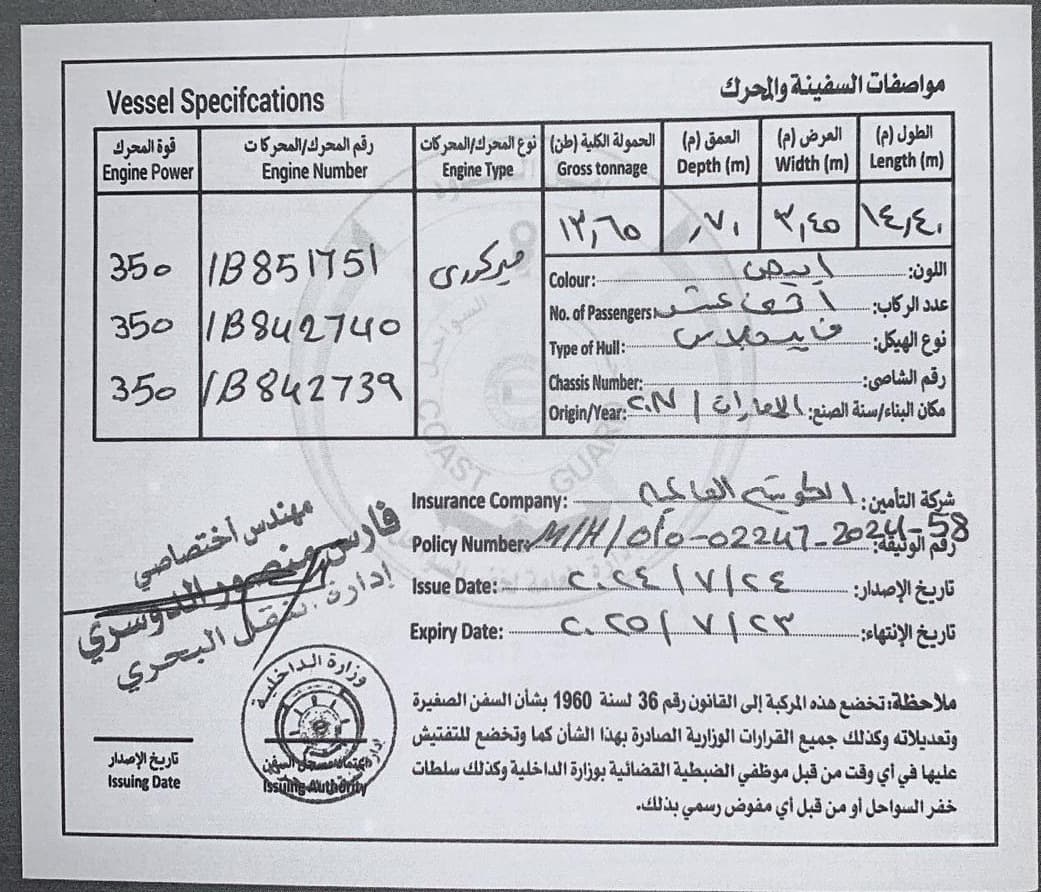 مواصفات السفينة والمحرك
Vessel Specifcations
الطول (م) العرض (م) العمق (م) الحمولة الكلية (طن) نوع المحرك/المحركات رقم المحرك/المحركات قوة المحرك
Length (m) Width (m) Depth (m) Gross tonnage Engine Type Engine Number Engine Power
١٤,٤٠ ٣,٤٥ ,٧٠ ١٣,٦٥
ميركري 1B851751 350
1B842740 350
1B842739 350
اللون: ابيض Colour:
عدد الركاب: اثنى عشر No. of Passengers:
نوع الهيكل: فايبرجلاس Type of Hull:
رقم الشاصى: Chassis Number:
مكان البناء/سنة الصنع: الامارات / Origin/Year:
شركة التأمين: Insurance Company:
رقم الوثيقة: M/H/010-02247-2024-58 Policy Number:
تاريخ الإصدار: ٢٠٢٤/٧/٢٤ Issue Date:
تاريخ الإنتهاء: ٢٠٢٥/٧/٢٣ Expiry Date:
مهندس أختصاصي
فارس منصور الدوسري
إدارة النقل البحري
وزارة الداخلية
تاريخ الإصدار
Issuing Date
Issuing Authority
ملاحظة: تخضع هذه المركبة إلى القانون رقم 36 لسنة 1960 بشأن السفن الصغيرة
وتعديلاته وكذلك جميع القرارات الوزارية الصادرة بهذا الشأن كما وتخضع للتفتيش
عليها في أي وقت من قبل موظفي الضبطية القضائية بوزارة الداخلية وكذلك سلطات
خفر السواحل أو من قبل أي مفوض رسمي بذلك.
COAST GUARD